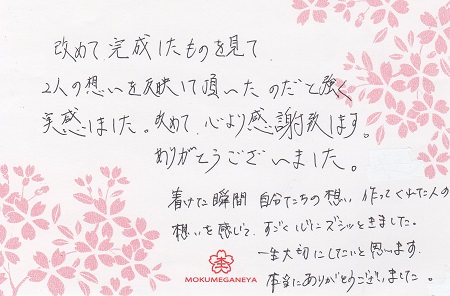 改めて完成したものを見て
2人の想いを反映して頂いたのだと強く
実感しました。改めて、心より感謝致します。
ありがとうございました。
着けた瞬間 自分たちの想い、作ってくれた人の
想いを感じて、すごく心にズシッときました。
一生大切にしたいと思います。
本当にありがとうございました。
MOKUMEGANEYA